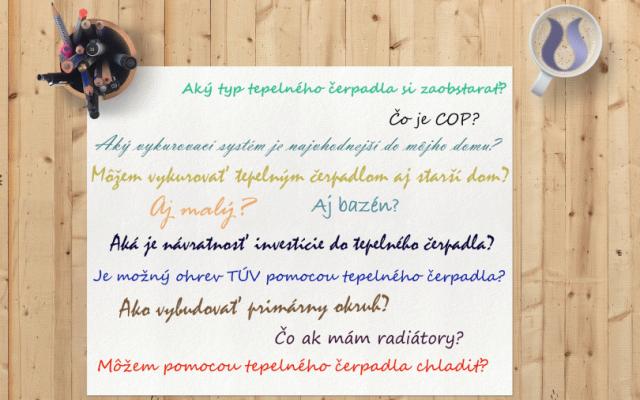 Aký typ tepelného čerpadla si zaobstarať?
Čo je COP?
Aký vykurovací systém je najvhodnejší do môjho domu?
Môžem vykurovať tepelným čerpadlom aj starší dom?
Aj malý?
Aj bazén?
Aká je návratnosť investície do tepelného čerpadla?
Je možný ohrev TÚV pomocou tepelného čerpadla?
Ako vybudovať primárny okruh?
Čo ak mám radiátory?
Môžem pomocou tepelného čerpadla chladiť?